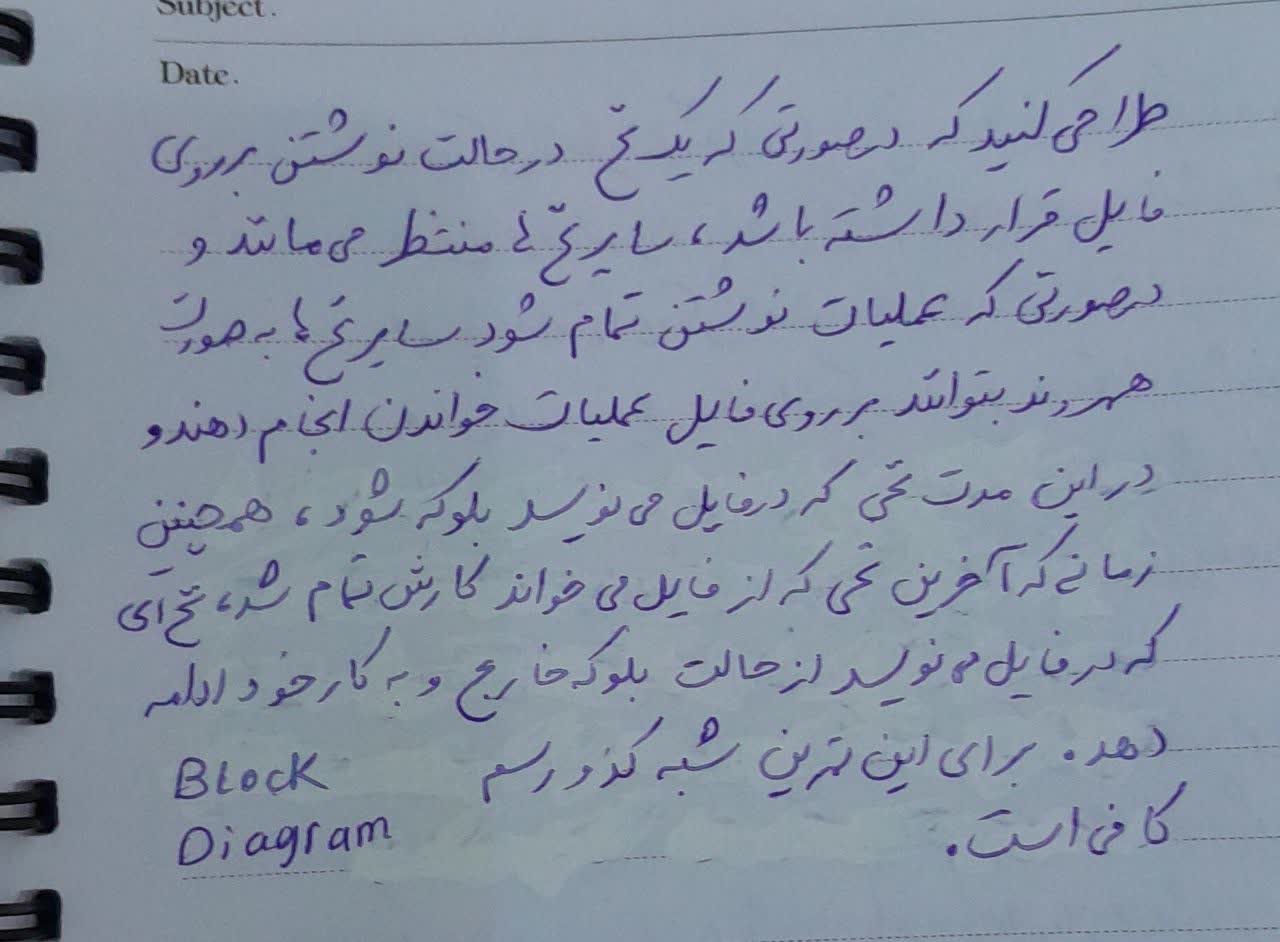 Subject.
Date.
طراحی کنید که درصورتی که یک نخ در حالت نوشتن بر روی
فایل قرار داشته باشد، سایر نخ ها منتظر می مانند و
درصورتی که عملیات نوشتن تمام شود سایر نخ ها به صورت
همروند بتوانند بر روی فایل عملیات خواندن انجام دهند و
در این مدت نخی که در فایل می نویسد بلوکه شود، همچنین
زمانی که آخرین نخی که از فایل می خواند کارش تمام شد، نخ ای
که در فایل می نویسد از حالت بلوکه خارج و به کار خود ادامه
دهد. برای این تمرین شبه کد و رسم Block
Diagram کافی است.